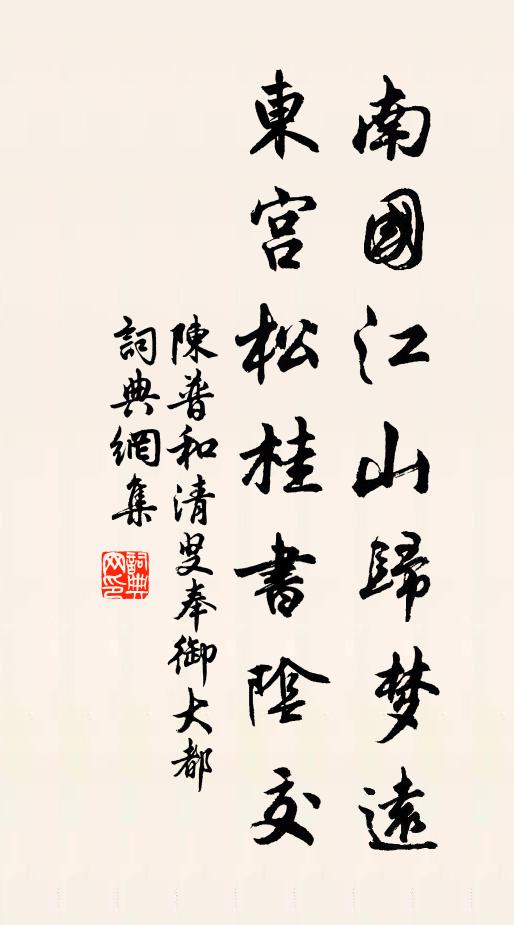 南國江山歸梦遠
東宮松桂書陰交
陳普和清叟奉御大都
詞典網集
詞典网印